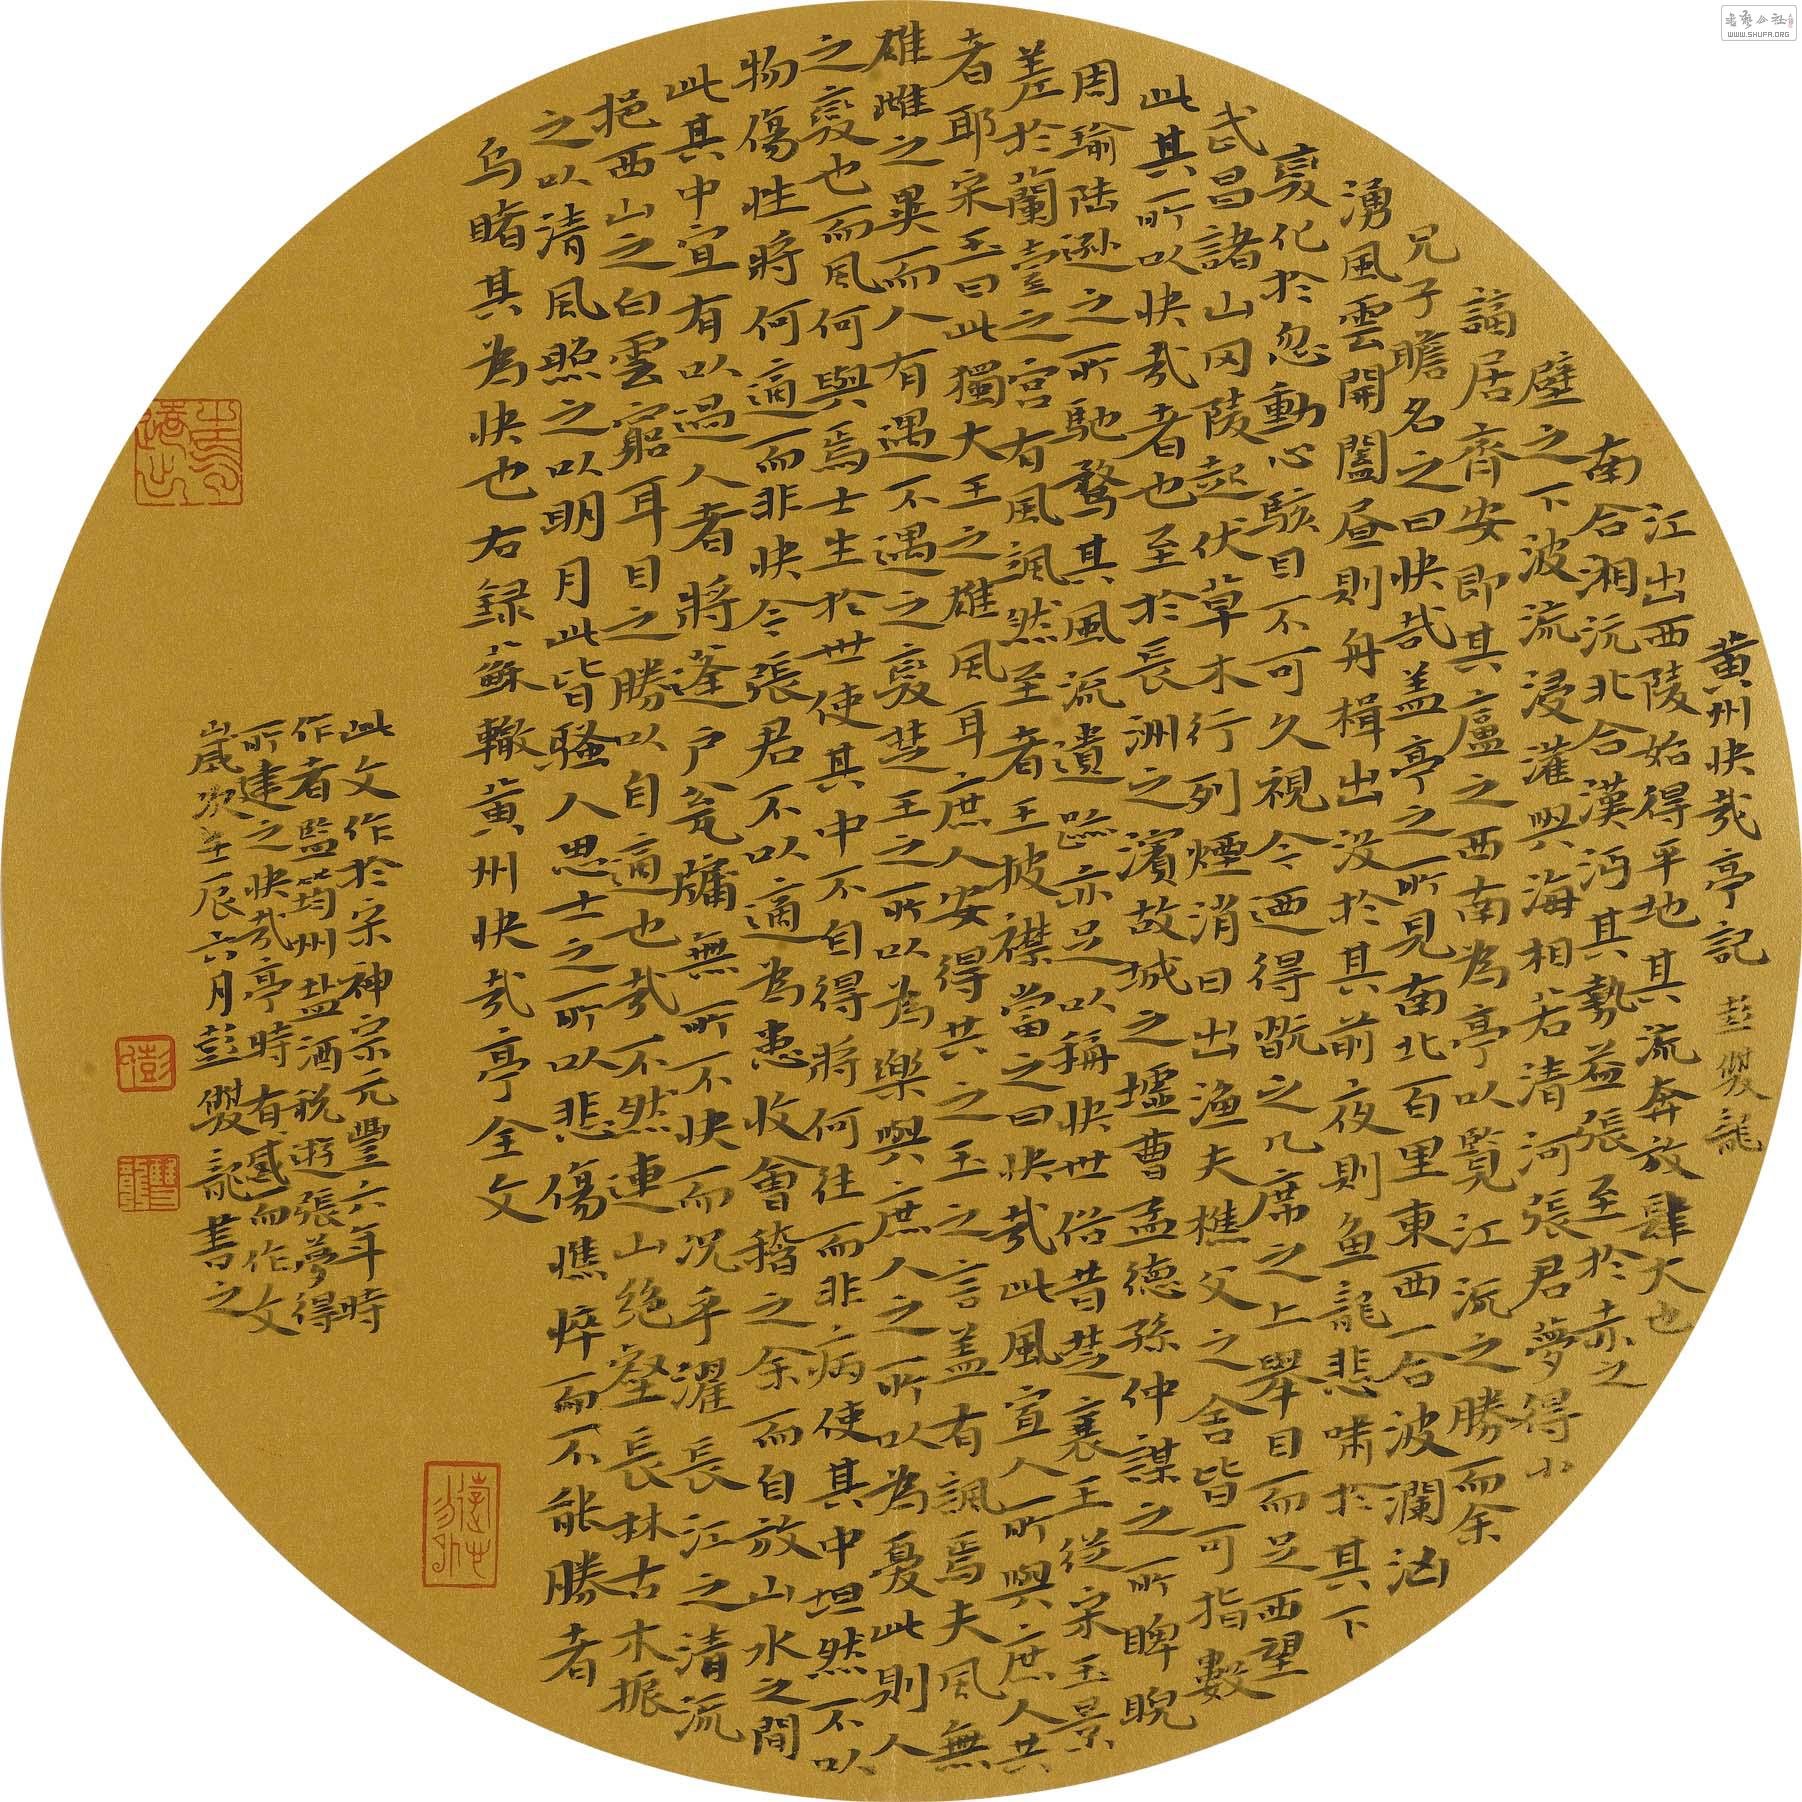 黄州快哉亭記 彭雙龍
江出西陵始得平地其流奔放肆大也
南合湘沅北合漢沔其勢益張至於赤之
壁之下波流浸灌與海相若清河張君夢得小
謫居齊安即其廬之西南為亭以覧江流之勝而余
兄子瞻名之曰快哉盖亭之所見南北百里東西一合波瀾洶
湧風雲開闔昼則舟楫出没於其前夜則鱼龍悲啸於其下
変化於忽動心駭目不可久視今迺得翫之几席之上舉目而足西望
武昌諸山冈陵起伏草木行列煙消日出渔夫樵父之舍皆可指數
此其所以快哉者也至於長洲之濱故城之墟曹孟德孫仲謀之所睥睨
周瑜陸逊之所馳騖其風流遺跡亦足以稱快世俗昔楚襄王從宋玉景
差於蘭臺之宫有風颯然至者王披襟當之曰快哉此風寡人所與庶人共
者耶宋玉曰此獨大王之雄風耳庶人安得共之玉之言盖有諷焉夫風無
雄雌之異而人有遇不遇之変楚王之所以為樂與庶人之所以為憂此則人
之変也而風何與焉士生於世使其中不自得將何往而非病使其中坦然不以
物傷性將何適而非快今張君不以適為患收會稽之余而自放山水之間
此其中宜有以過人者將蓬户瓮牖無所不快而况乎濯長江之清流
挹西山之白雲窮耳目之勝以自適也哉不然連山绝壑長林古木振
之以清風照之以明月此皆騷人思士之所以悲傷憔悴而不能勝者
乌睹其為快也右録蘇轍黄州快哉亭全文
此文作於宋神宗元豐六年時
作者監筠州盐酒税遊張夢得
所建之快哉亭時有感而作文
歲次壬辰六月彭雙龍書之
彭
雙龍
書藝公社
WWW.SHUFA.ORG